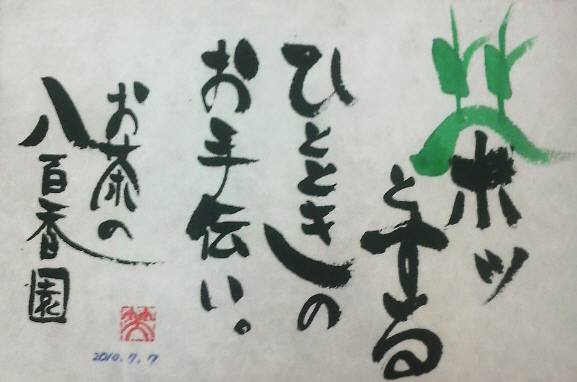 ホッ
とする
ひとときの
お手伝い。
お茶の
八百香園
笑
2010.7.7